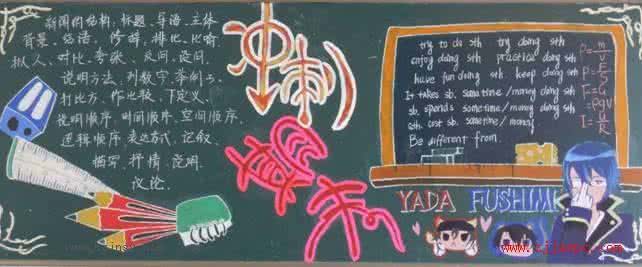 新闻的结构：标题、导语、主体
背景、结语、修辞、排比、比喻
拟人、对比、夸张、反问、设问、
说明方法、列数字、举例子
打比方、作比较、下定义、
说明顺序、时间顺序、空间顺序、
逻辑顺序、表达方式、记叙、
描写、抒情、说明、
议论.
冲刺
try to do sth try doing sth
enjoy doing sth practice doing sth
have fun doing sth keep doing sth
It takes sb. some time/money doing sth
sb. spends sometime/money doing sth
sth. cost sb. sometime/money
Be different from
P=m/v
P=F/S
F=G
=ρgV
I=U/R
YADA FUSHIM